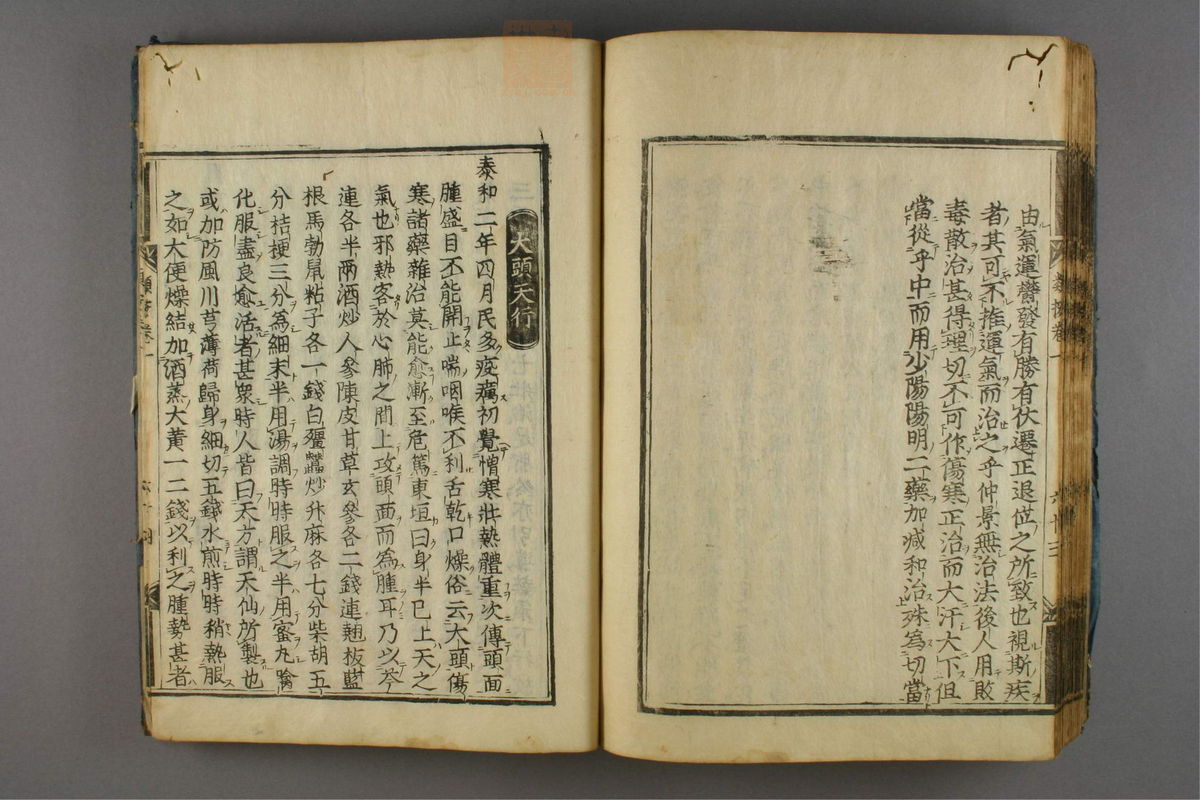 由氣運鬱發有勝有伏遷正退位之所致也視斯疾
者其可不推運氣而治之乎仲景無治法後人用敗
毒散治甚得理切不可作傷寒正治而大汗大下但
當從乎中而用少陽陽明二藥加減和治殊為切當
類拔卷一
六十三
大頭天行
泰和二年四月民多疫癘初覺憎寒壯熱體重次傳頭面
腫盛目不能開上喘咽喉不利舌乾口燥俗云大頭傷
寒諸藥雜治莫能愈漸至危篤東垣曰身半已上天之
氣也邪熱客於心肺之間上攻頭面而為腫耳乃以芩
連各半兩酒炒人參陳皮甘草玄參各二錢連翹板藍
根馬勃鼠粘子各一錢白殭蠶炒升麻各七分柴胡五
分桔梗三分為細末半用湯調時時服之半用蜜丸噙
化服盡良愈活者甚衆時人皆曰天方謂天仙所製也
或加防風川芎薄荷歸身細切五錢水煎時時稍熱服
之如大便燥結加酒蒸大黃一二錢以利之腫勢甚者